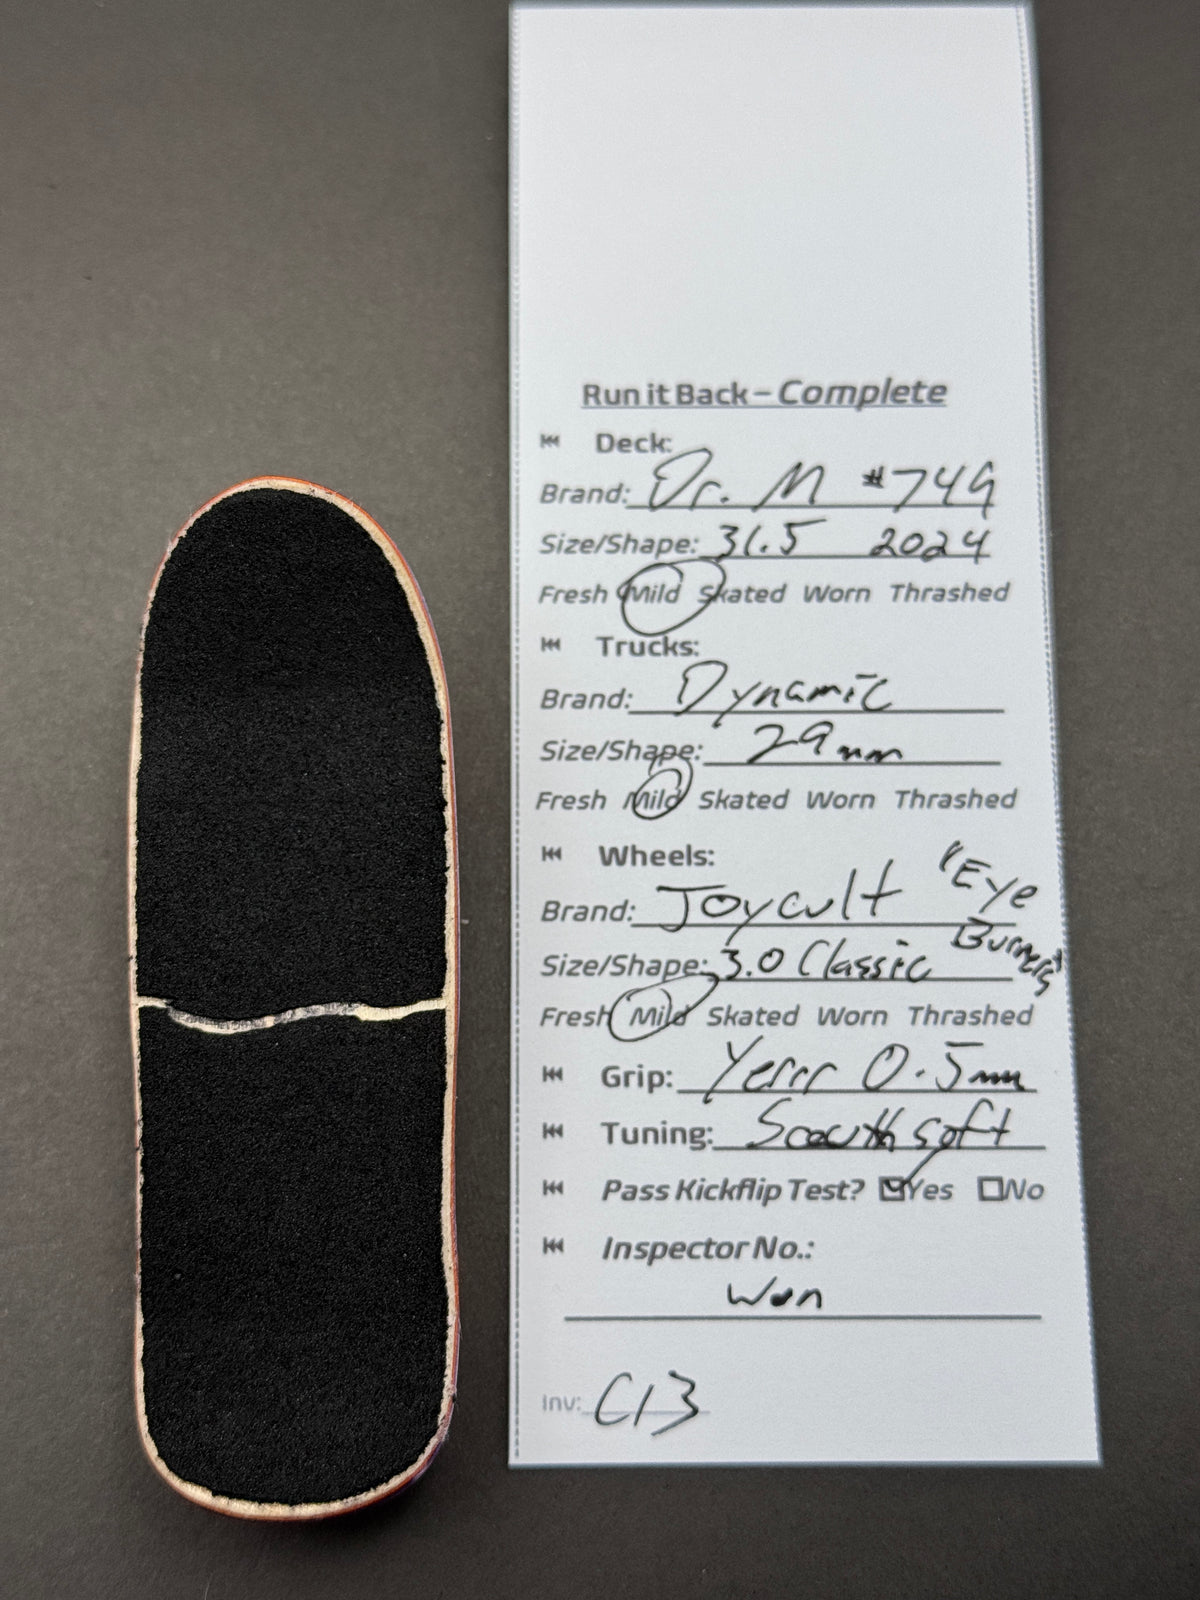 Run it Back – Complete
⏮ Deck:
Brand: Dr. M #749
Size/Shape: 31.5 2024
Fresh Mild Skated Worn Thrashed
⏮ Trucks:
Brand: Dynamic
Size/Shape: 29mm
Fresh Mild Skated Worn Thrashed
⏮ Wheels:
Brand: Joycult "Eye
Burners"
Size/Shape: 3.0 Classic
Fresh Mild Skated Worn Thrashed
⏮ Grip: Yerrr 0.5mm
⏮ Tuning: soft
⏮ Pass Kickflip Test? ☑Yes ☐No
⏮ Inspector No.:
Won
Inv: C13